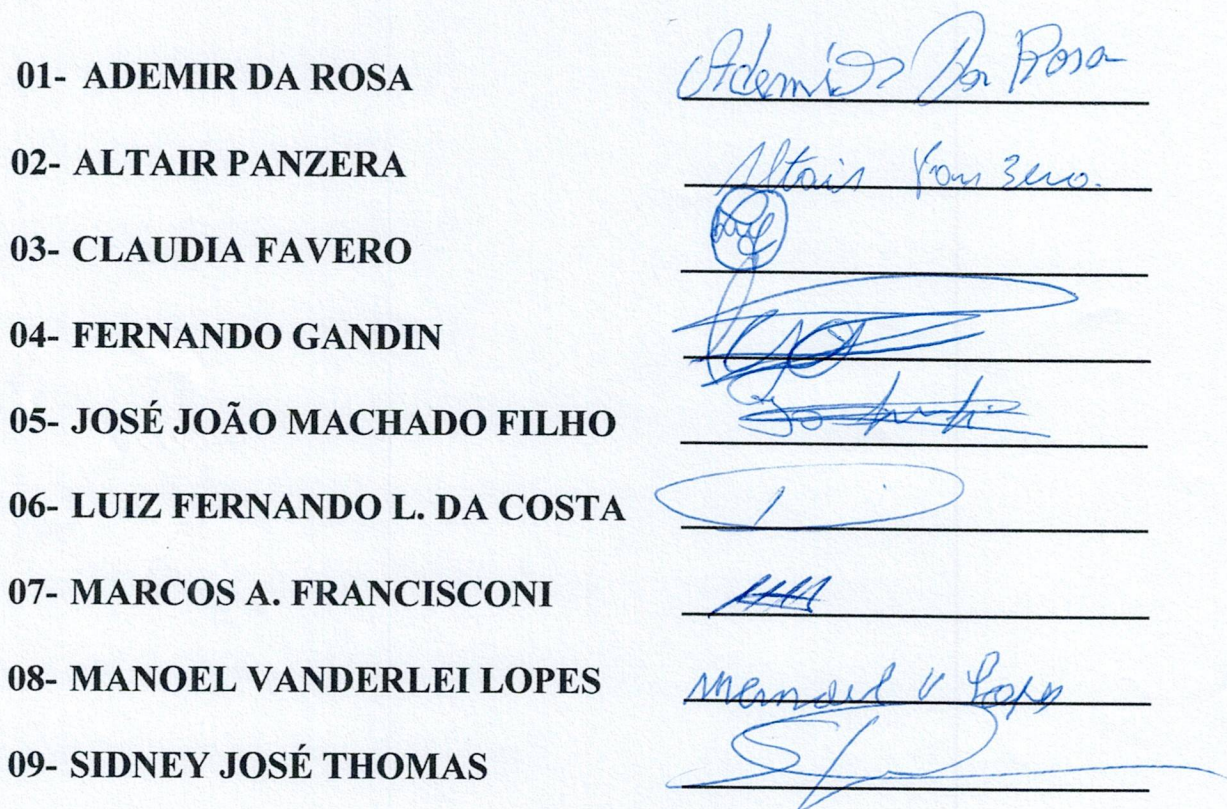 01- ADEMIR DA ROSA Ademir Da Rosa
02- ALTAIR PANZERA Altair Panzera.
03- CLAUDIA FAVERO
04- FERNANDO GANDIN
05- JOSÉ JOÃO MACHADO FILHO
06- LUIZ FERNANDO L. DA COSTA
07- MARCOS A. FRANCISCONI
08- MANOEL VANDERLEI LOPES Manoel V Lopes
09- SIDNEY JOSÉ THOMAS